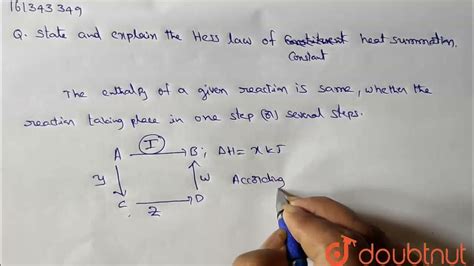 161343349
Q. State and explain the Hess law of Constant heat summation.
The enthalpy of a given reaction is same, whether the
reaction taking place in one step (or) several steps.
A I B; ΔH = x kJ
y W According
C Z D
doubtnut